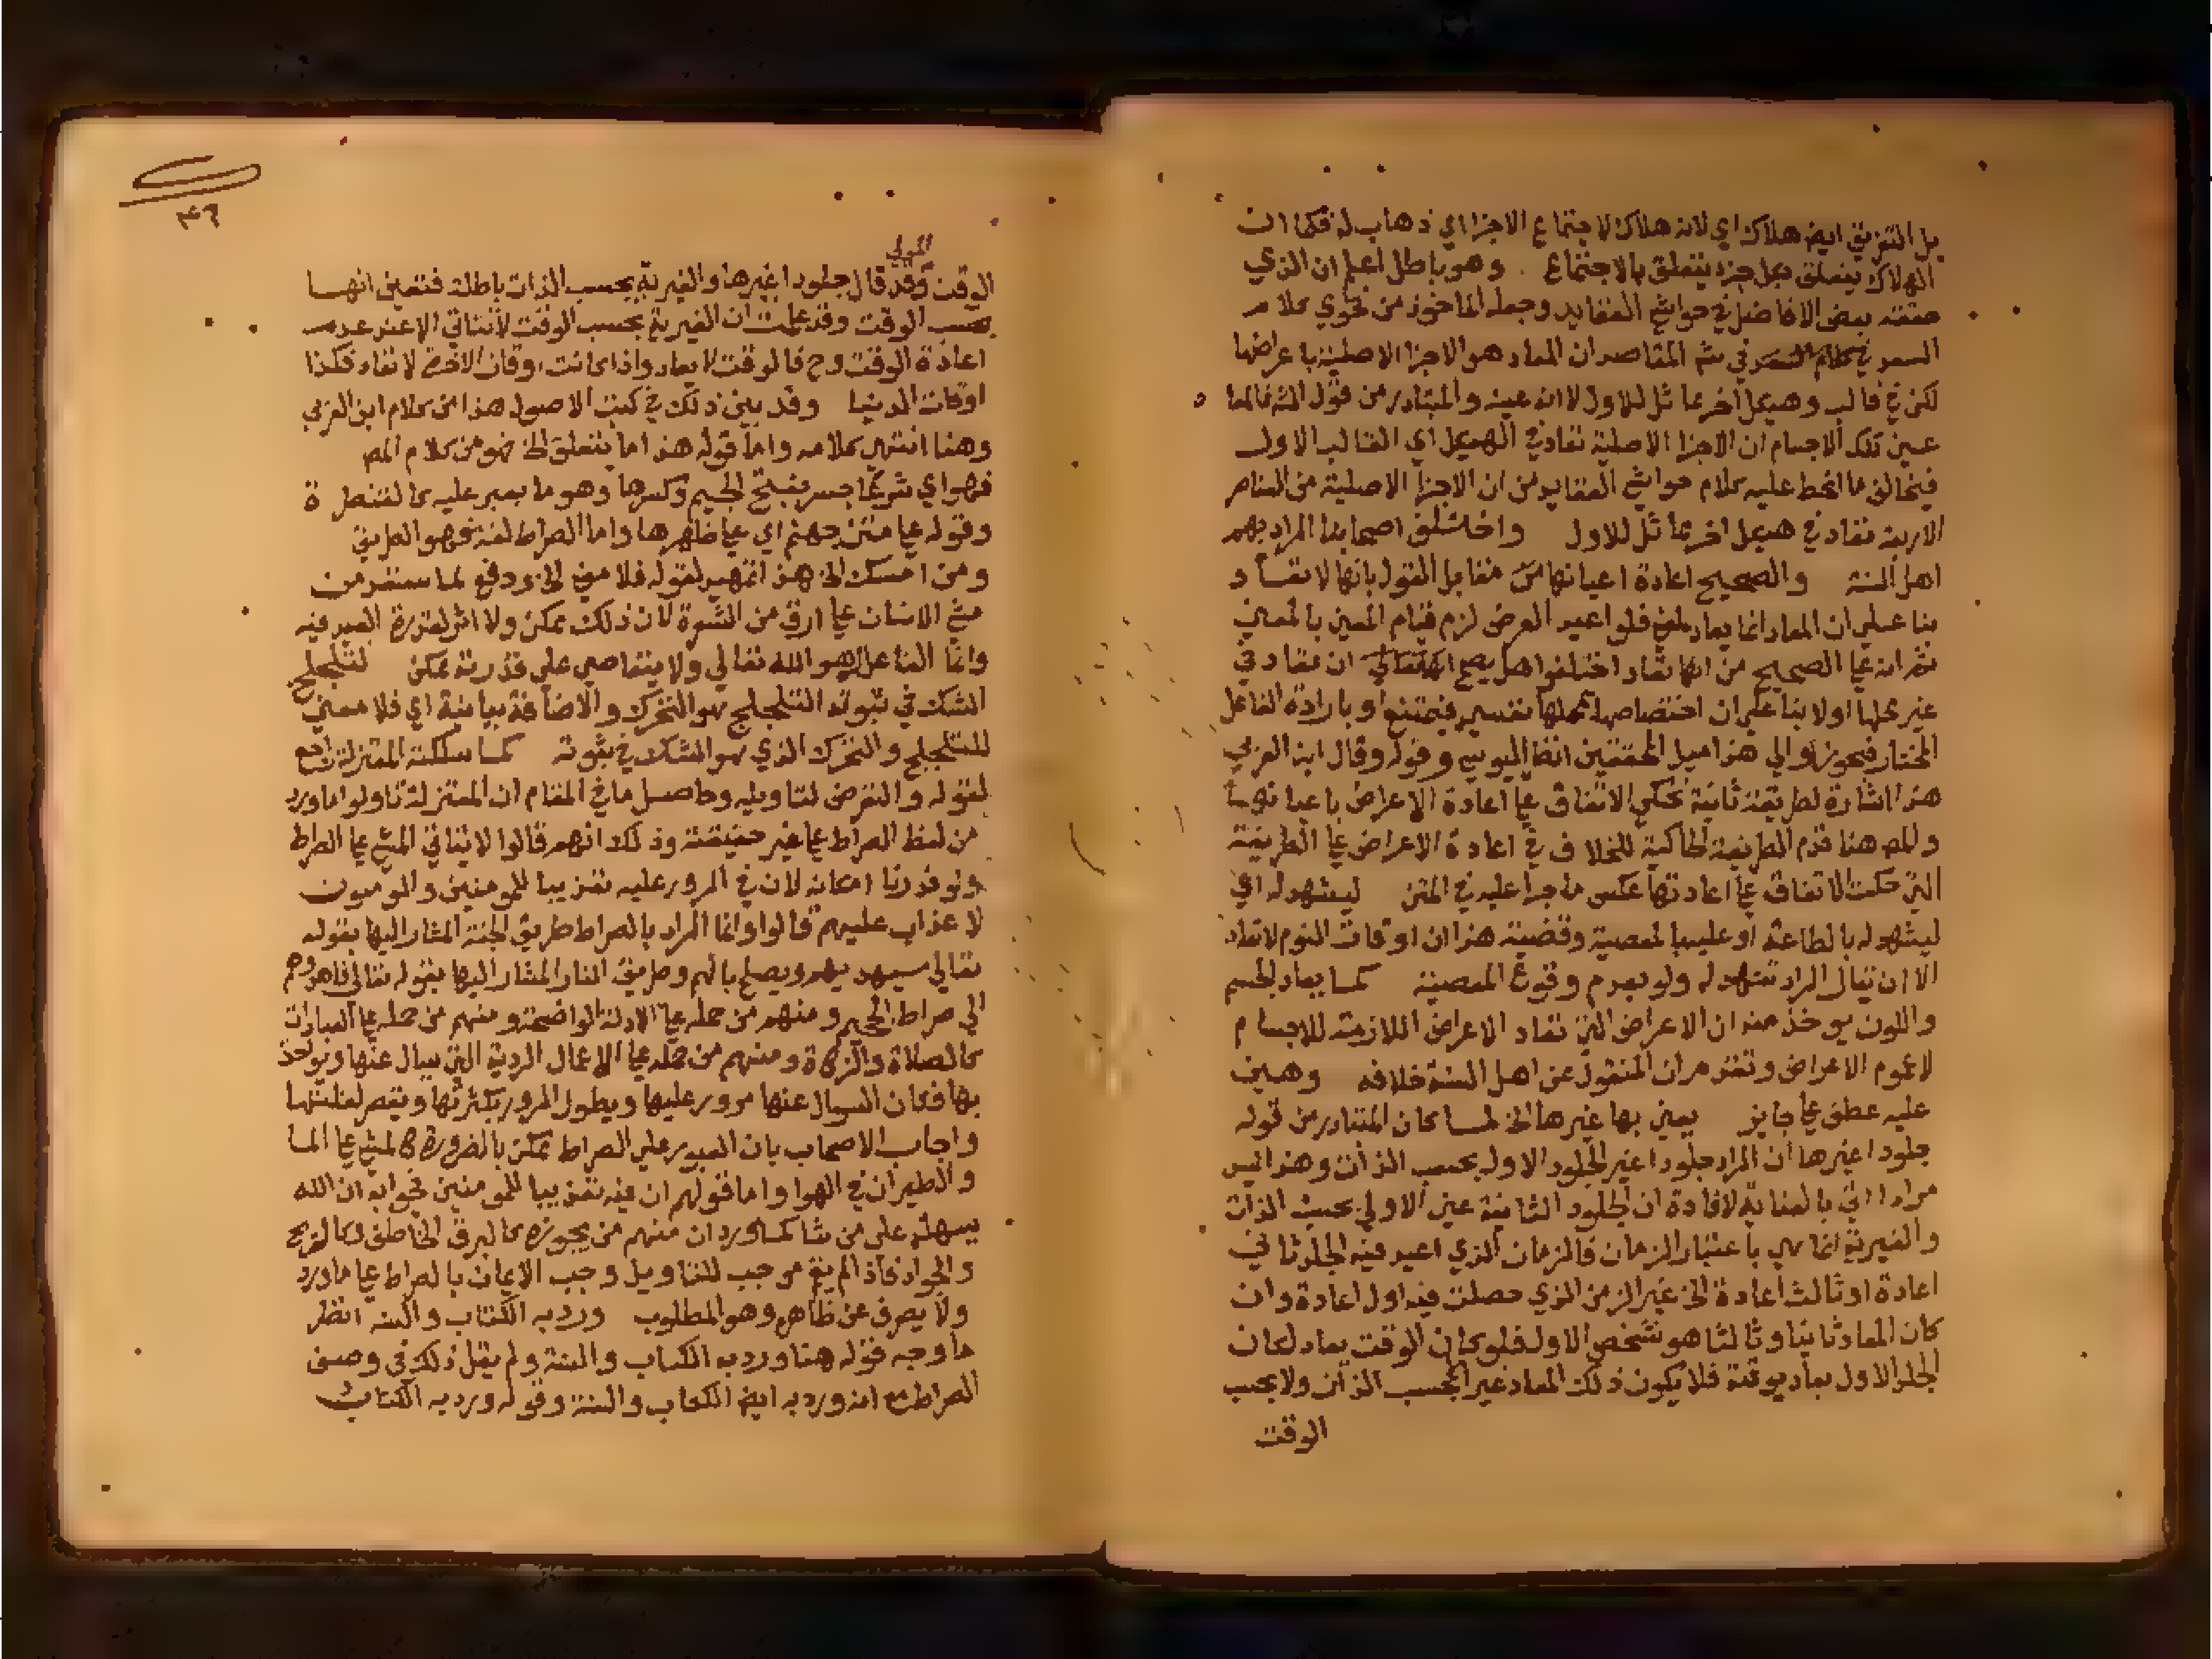 بل التفريق ايض هلاك اي لانه هلاك لاجتماع الاجزا اي ذهاب له فكما ان
الهلاك يتعلق بكل جزء يتعلق بالاجتماع وهو باطل اعلم ان الذي
حققه بعض الافاضل في حواشي العقايد وجعله الماخوذ من فحوي كلام
السعد في شم المقاصد ان المعاد هو الاجزا الاصلية باعراضها
لكن في قالب وهيكل اخر مماثل للاول لا انه عينه والمتبادر من قول
عين تلك الاجسام ان الاجزا الاصلية تعاد في الهيكل اي القالب الاول
فيخالف ما انحط عليه كلام حواشي العقايد من ان الاجزا الاصلية من العناصر
الاربعة تعاد في هيكل اخر مماثل للاول واختلف اصحابنا المراد بهم
اهل السنة والصحيح اعادة اعيانها من مقابل القول بانها لا تعاد
بنا علي ان المعاد انما يعاد لمعني فلو اعيد العرض لزم قيام المعني بالمعني
ثم انه علي الصحيح من انها تعاد اختلفوا هل يصح ان تعاد في
غير محلها اولا بنا علي ان اختصاصها بمحلها فيمتنع او بارادة الفاعل
المختار فيجوز والي هذا ميل المحققين انظر اليوسي وقوله وقال ابن العربي
هذا اشارة لطريقة ثانية تحكي الاتفاق علي اعادة الاعراض باعيانها
والمص هنا قدم الطريقة الحاكية للخلاف في اعادة الاعراض علي الطريقة
التي حكت الاتفاق علي اعادتها عكس ما جرا عليه في المتن ليشهد له اي
ليشهد له بالطاعة او عليه بالمعصية وقضية هذا ان اوقات النوم لا تعاد
الا ان يقال المراد تشهد له ولو بعدم وقوع المعصية كما يعاد الجسم
واللون يوخذ منه ان الاعراض التي تعاد الاعراض اللازمة للاجسام
لا عموم الاعراض وتقدم ان المنقول عن اهل السنة خلافه
عليه عطف علي جايز يعني بها غيرها الخ لما كان المتبادر من قوله
جلودا غيرها ان المراد جلودا غير الجلود الاول بحسب الذات وهذا ليس
مرادا اتي بالعناية لافادة ان الجلود الثانية عين الاولي بحسب الذات
والغيرية انما هي باعتبار الزمان فالزمان الذي اعيد فيه الجلد ثاني
اعادة او ثالث اعادة الخ غير الزمن الذي حصلت فيه اول اعادة وان
كان المعاد ثانيا وثالثا هو شخص الاول فلو كان الوقت يعاد لكان
الجلد الاول يعاد بوقته فلا يكون ذلك المعاد غيرا بحسب الذات ولا بحسب
الوقت
٤٦
المولي
الوقت وقد قال جلودا غيرها والغيرية بحسب الذات باطلة فتعين انها
بحسب الوقت وقد علمت ان الغيرية بحسب الوقت لا تتاتي الا عند عدم
اعادة الوقت وح فالوقت لا يعاد واذا كانت اوقات الاخرة لا تعاد فكذا
اوقات الدنيا وقد بين ذلك في كتب الاصول هذا من كلام ابن العربي
وهنا انتهي كلامه واما قوله هذا ما يتعلق الخ فهو من كلام المص
فهو اي شرعا جسر بفتح الجيم وكسرها وهو ما يعبر عليه كالقنطرة
وقوله علي متن جهنم اي علي ظاهرها واما الصراط لغة فهو الطريق
ومن امسك الخ هذا تمهيد لقوله فلا معني الخ ودفع لما يستغرب من
مشي الانسان علي ارق من الشعرة لان ذلك ممكن ولا اثر لقدرة العبد فيه
وانما الفاعل هو الله تعالي ولا يتعاصي علي قدرته ممكن لتلجلج
الشك في ثبوته التلجلج هو التحرك والاضافة بيانية اي فلا معني
للتلجلج والتحرك الذي هو الشك في ثبوته كما سلكته المعتزلة راجع
لقوله والتعرض لتاويله وحاصل ما في المقام ان المعتزلة تاولوا ما ورد
من لفظ الصراط علي غير حقيقته وذلك انهم قالوا لا يتاتي المشي علي الصراط
ولو قدرنا امكانه لان في المرور عليه تعذيبا للمومنين والمومنون
لا عذاب عليهم قالوا وانما المراد بالصراط طريق الجنة المشار اليها بقوله
تعالي سيهديهم ويصلح بالهم وطريق النار المشار اليها بقوله تعالي فاهدوهم
الي صراط الجحيم ومنهم من حمله علي الادلة الواضحة ومنهم من حمله علي العبادات
كالصلاة والزكاة ومنهم من حمله علي الاعمال الردية التي يسال عنها ويوخذ
بها فكان السوال عنها مرور عليها ويطول المرور بكثرتها ويقصر لقلتها
واجاب الاصحاب بان العبور علي الصراط ممكن بالضرورة كالمشي علي الما
والطيران في الهوا واما قولهم ان فيه تعذيبا للمومنين فجوابه ان الله
يسهله علي من شا كما ورد ان منهم من يجوزه كالبرق الخاطف وكالريح
والجواد فاذا لم يقم موجب للتاويل وجب الايمان بالصراط علي ما ورد
ولا يصرف عن ظاهره وهو المطلوب ورد به الكتاب والسنه انظر
ما وجه قوله هنا ورد به الكتاب والسنة ولم يقل ذلك في وصف
الصراط مع انه ورد به ايض الكتاب والسنة وقوله ورد به الكتاب